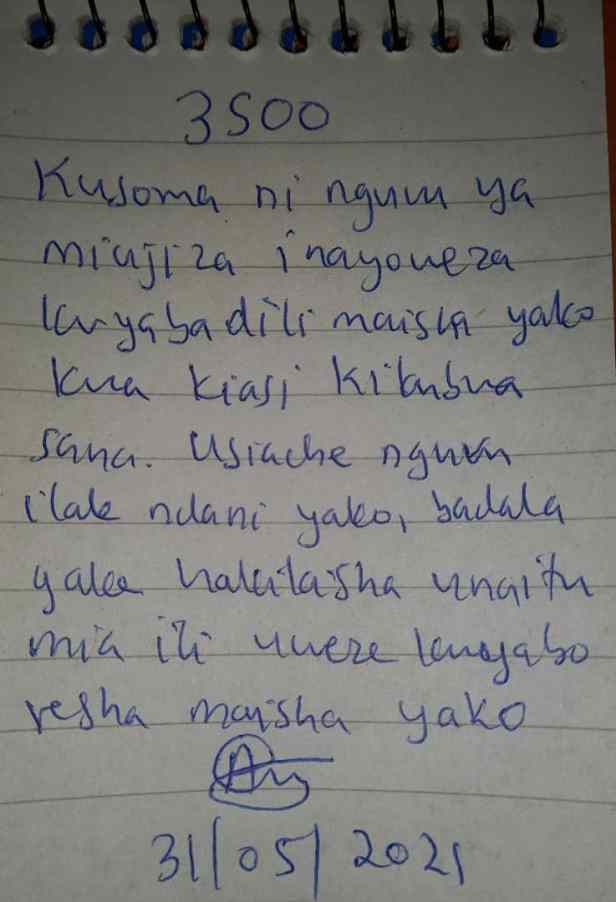 3500
Kusoma ni nguvu ya
miujiza inayoweza
kuyabadili maisha yako
kwa kiasi kikubwa
sana. Usiache nguvu
ilale ndani yako, badala
yake hakikisha unaitu
mia ili uweze kuyabo
resha maisha yako
31/05/2021